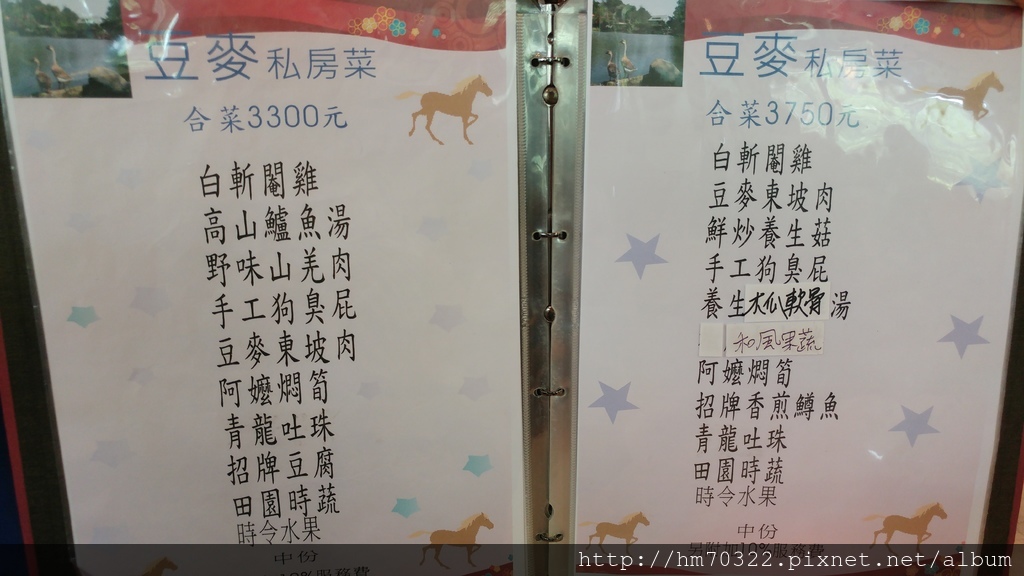 豆麥私房菜
合菜3300元
白斬閹雞
高山鱸魚湯
野味山羌肉
手工狗臭屁
豆麥東坡肉
阿嬤燜筍
青龍吐珠
招牌豆腐
田園時蔬
時令水果
中份
10%服務費
豆麥私房菜
合菜3750元
白斬閹雞
豆麥東坡肉
鮮炒養生菇
手工狗臭屁
養生木瓜軟骨湯
和風果蔬
阿嬤燜筍
招牌香煎鱒魚
青龍吐珠
田園時蔬
時令水果
中份
另附加10%服務費
http://hm70322.pixnet.net/album